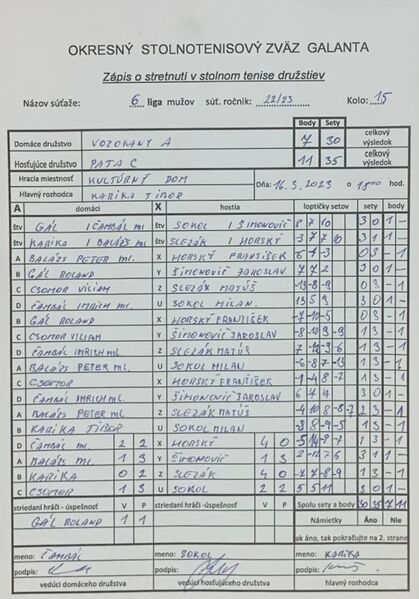 OKRESNÝ STOLNOTENISOVÝ ZVÄZ GALANTA
Zápis o stretnutí v stolnom tenise družstiev
Názov súťaže: 6 liga mužov súť. ročník: 22/23 Kolo: 15
Body Sety celkový výsledok
Domáce družstvo VOZOKANY A 7 30
Hosťujúce družstvo PATA C 11 35 celkový výsledok
Hracia miestnosť KULTÚRNY DOM Dňa: 16.3.2023 o 18°° hod.
Hlavný rozhodca KARIKA TIBOR
A domáci X hostia loptičky setov sety body
štv GÁL / ČAMBÁL ml štv SOKOL / ŠIMONOVIČ 8 7 10 3 0 1 -
štv KARIKA / BALÁŽS ml štv SLEZÁK / HORSKÝ
A BALÁŽS PETER ml. X HORSKÝ FRANTIŠEK 0 3 - 1
B GÁL ROLAND Y ŠIMONOVIČ JAROSLAV 7 7 2 3 0 1 -
C CSOMOR VILIAM Z SLEZÁK MATÚŠ 1 3 - 1
D ČAMBÁL IMRICH ml. U SOKOL MILAN 13 5 9 3 0 1 -
B GÁL ROLAND X HORSKÝ FRANTIŠEK
C CSOMOR VILIAM Y ŠIMONOVIČ JAROSLAV 1 3 - 1
D ČAMBÁL IMRICH ml. Z SLEZÁK MATÚŠ 1 3 - 1
A BALÁŽS PETER ml. U SOKOL MILAN 1 3 - 1
C CSOMOR X HORSKÝ FRANTIŠEK 1 3 - 1
D ČAMBÁL IMRICH ml. Y ŠIMONOVIČ JAROSLAV 6 4 4 3 0 1 -
A BALÁŽS PETER ml. Z SLEZÁK MATÚŠ 2 3 - 1
B KARIKA TIBOR U SOKOL MILAN 1 3 - 1
D ČAMBÁL ml. 2 2 X HORSKÝ 4 0 1 3 - 1
A BALÁŽS ml. 1 3 Y ŠIMONOVIČ 1 3 3 1 1 -
B KARIKA 0 2 Z SLEZÁK 4 0 1 3 - 1
C CSOMOR 1 3 U SOKOL 2 2 5 5 11 3 0 1 -
striedaní hráči - úspešnosť V P striedaní hráči - úspešnosť V P Spolu sety a body 30 35 7 11
GÁL ROLAND 1 1 Námietky Áno Nie
ak áno, tak pokračujte na 2. strane
meno: ČAMBÁL meno: SOKOL meno: KARIKA
podpis: podpis: podpis:
vedúci domáceho družstva vedúci hosťujúceho družstva hlavný rozhodca